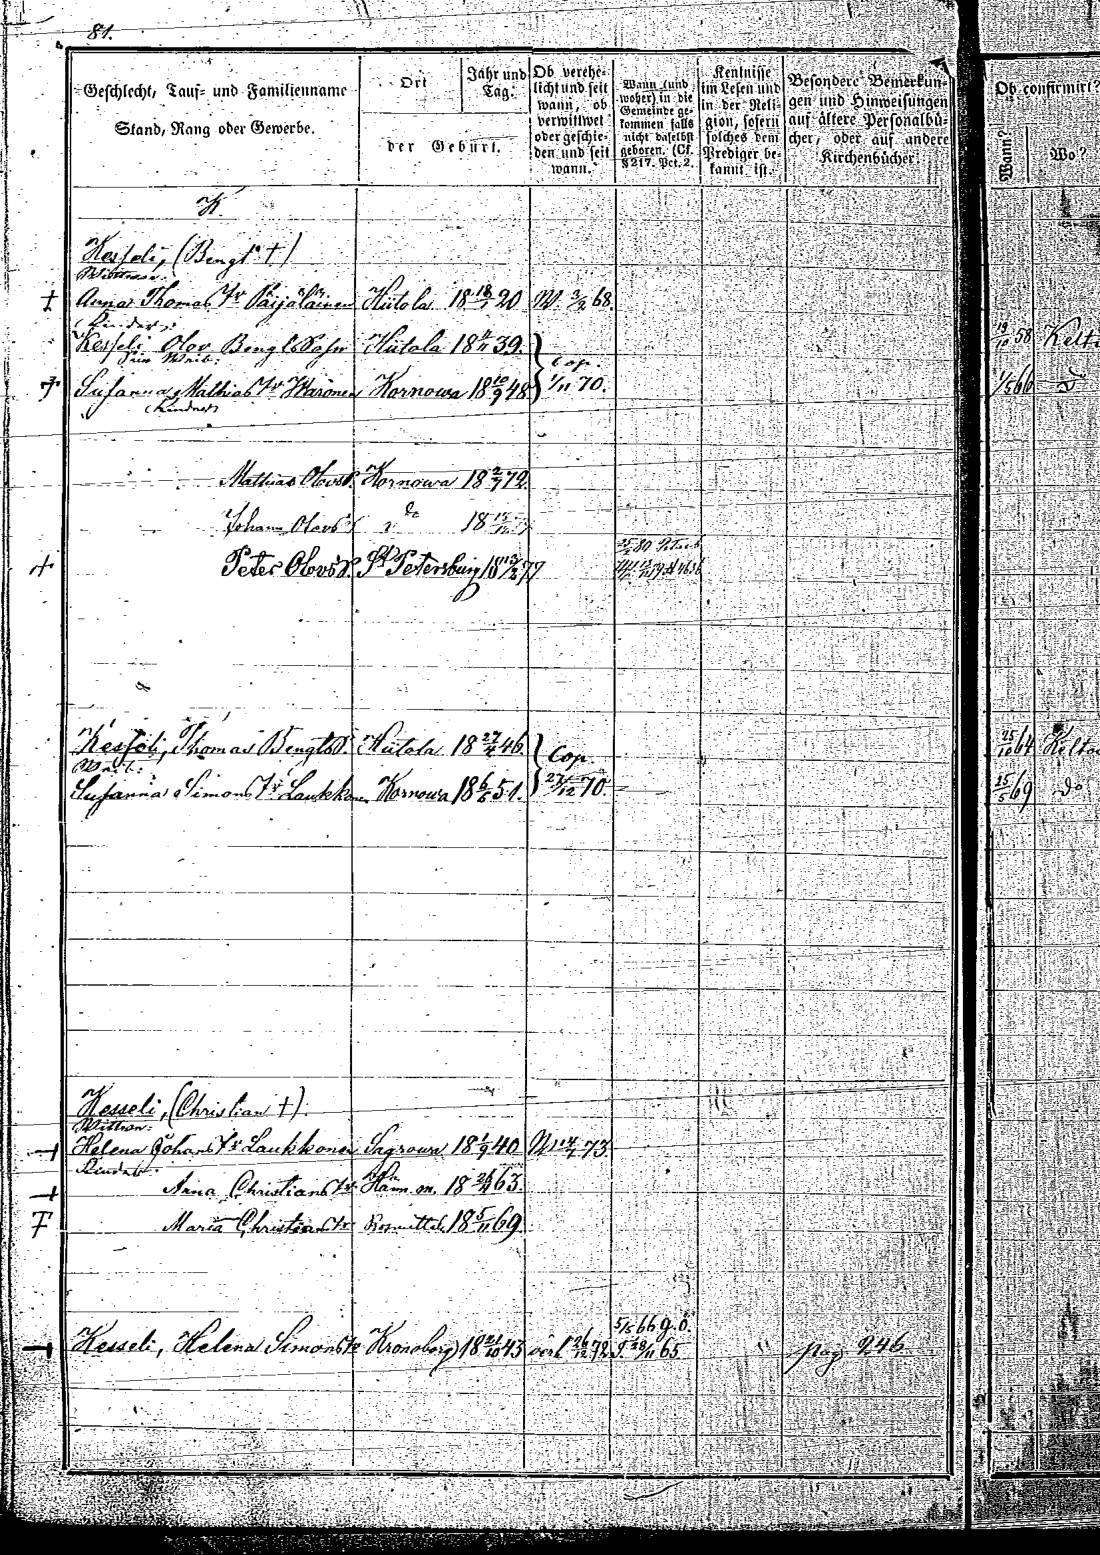 81.
Geschlecht, Tauf- und Familienname
Stand, Rang oder Gewerbe.
Ort
Jahr und Tag.
der Geburt.
Ob verehe-
licht und seit
wann, ob
verwittwet
oder geschie-
den und seit
wann.
Wann (und
woher) in die
Gemeinde ge-
kommen falls
nicht daselbst
geboren. (Cf.
§ 217. Pct. 2.
Kentnisse
im Lesen und
in der Reli-
gion, sofern
solches dem
Prediger be-
kannt ist.
Besondere Bemerkun-
gen und Hinweisungen
auf ältere Personalbü-
cher, oder auf andere
Kirchenbücher.
Ob confirmirt?
Wann?
Wo?
K.
Kesseli, (Bengt †)
Wittwe.
† Anna Thomas Tr Päijäläinen Hiitola 18 20 W. 68.
Kinder:
Kesseli Olov Bengts Sohn Hiitola 18 39. 58
sein Weib:
cop.
Susanna Mathias Tr Kornowa 18 10/9 48 1/11 70. 1/5 66 do
Kinder
Mathias Olovs S. Kornowa 18 2/7 72.
Johann Olovs S do 18
† Peter Olovs S. St Petersburg 18 77
Kesseli, Thomas Bengts S. Hiitola 18 27/4 46. Cop 25/10 64
Weib:
Susanna Simons Tr Laukkonen Kornowa 18 6/5 51. 27/12 70. 25/5 69 do
Kesseli, (Christian †)
Wittwe:
Helena Johans Tr Laukkonen 18 1/9 40 W. 73
Kinder:
Anna Christians Tr 18 63.
Maria Christians Tr 18 5/11 69.
5/5 66 g.d.
Kesseli, Helena Simons Tr Kronoborg 18 21/10 43 verh 26/12 72 65 pag 246